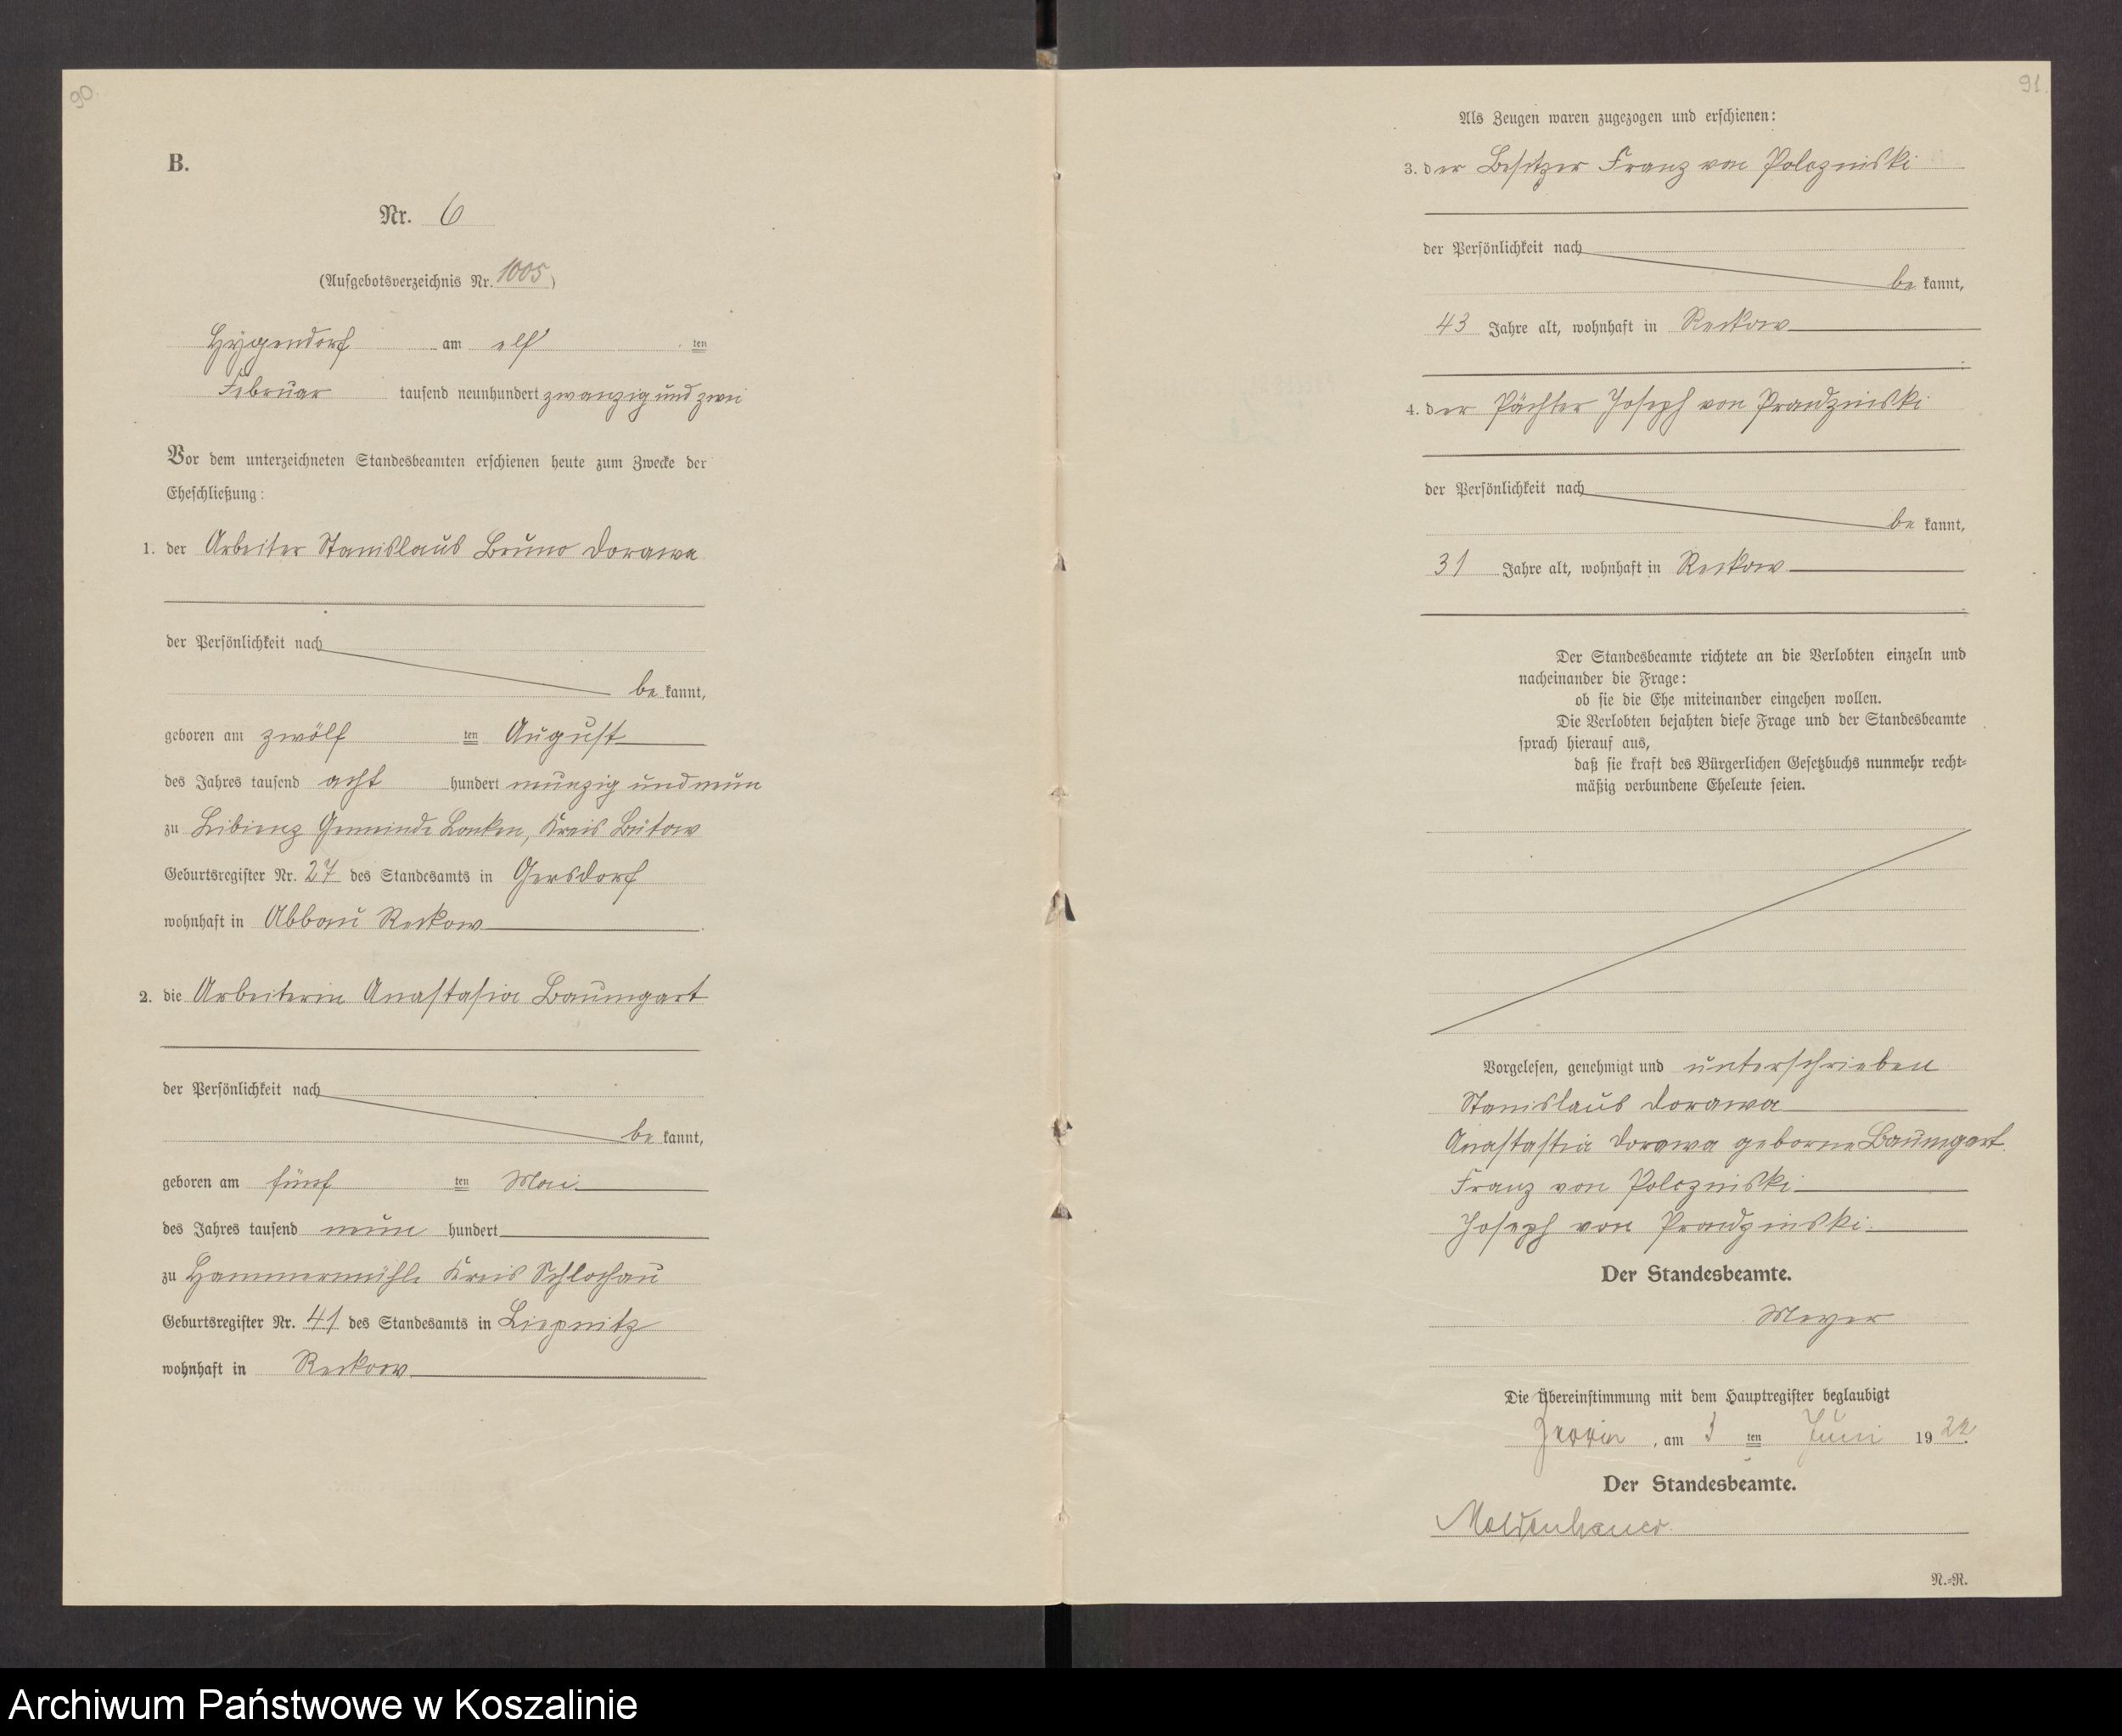 90
B.
Nr. 6
(Aufgebotsverzeichnis Nr. 1005)
Hygendorf am elf ten
Februar tausend neunhundert zwanzig und zwei
Vor dem unterzeichneten Standesbeamten erschienen heute zum Zwecke der
Eheschließung:
1. der Arbeiter Stanislaus Bruno Dorawa
der Persönlichkeit nach
be kannt,
geboren am zwölf ten August
des Jahres tausend acht hundert neunzig und neun
zu Libienz Gemeinde Lonken, Kreis Bütow
Geburtsregister Nr. 27 des Standesamts in Gersdorf
wohnhaft in Abbau Reckow
2. die Arbeiterin Anastasia Baumgart
der Persönlichkeit nach
be kannt,
geboren am fünf ten Mai
des Jahres tausend neun hundert
zu Hammermühle Kreis Schlochau
Geburtsregister Nr. 41 des Standesamts in Liepnitz
wohnhaft in Reckow
91.
Als Zeugen waren zugezogen und erschienen:
3. der Besitzer Franz von Polczniski
der Persönlichkeit nach
be kannt,
43 Jahre alt, wohnhaft in Reckow
4. der Pächter Joseph von Prondzinski
der Persönlichkeit nach
be kannt,
31 Jahre alt, wohnhaft in Reckow
Der Standesbeamte richtete an die Verlobten einzeln und
nacheinander die Frage:
ob sie die Ehe miteinander eingehen wollen.
Die Verlobten bejahten diese Frage und der Standesbeamte
sprach hierauf aus,
daß sie kraft des Bürgerlichen Gesetzbuchs nunmehr recht-
mäßig verbundene Eheleute seien.
Vorgelesen, genehmigt und unterschrieben
Stanislaus Dorawa
Anastastia Dorawa geborne Baumgart.
Franz von Polczniski
Joseph von Prondzinski
Der Standesbeamte.
Meyer
Die Übereinstimmung mit dem Hauptregister beglaubigt
, am 3 ten Juni 1922.
Der Standesbeamte.
Moldenhauer
N.-R.
Archiwum Państwowe w Koszalinie